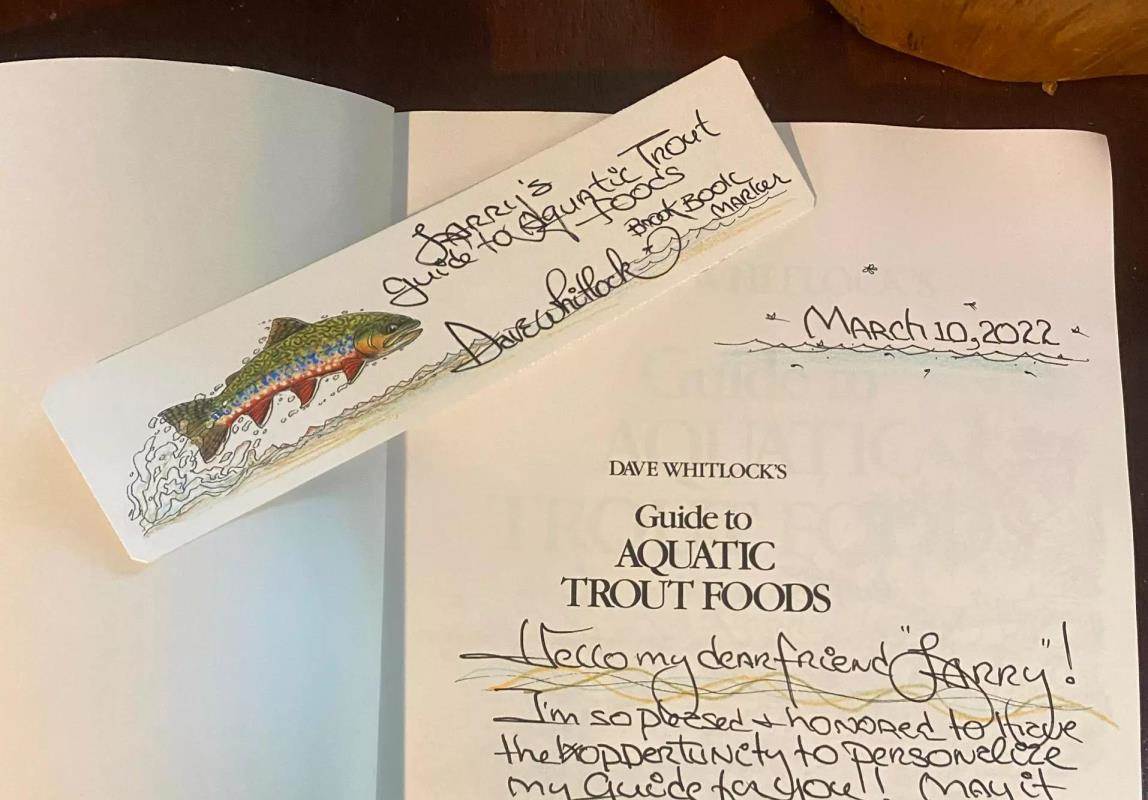 LARRY's
Guide to Aquatic Trout
Foods
Brook Book
Marker
Dave Whitlock
March 10, 2022
DAVE WHITLOCK'S
Guide to
AQUATIC
TROUT FOODS
Hello my dear friend "LARRY"!
I'm so pleased & honored to have
the oppertunity to personalize
my Guide for you!! May it